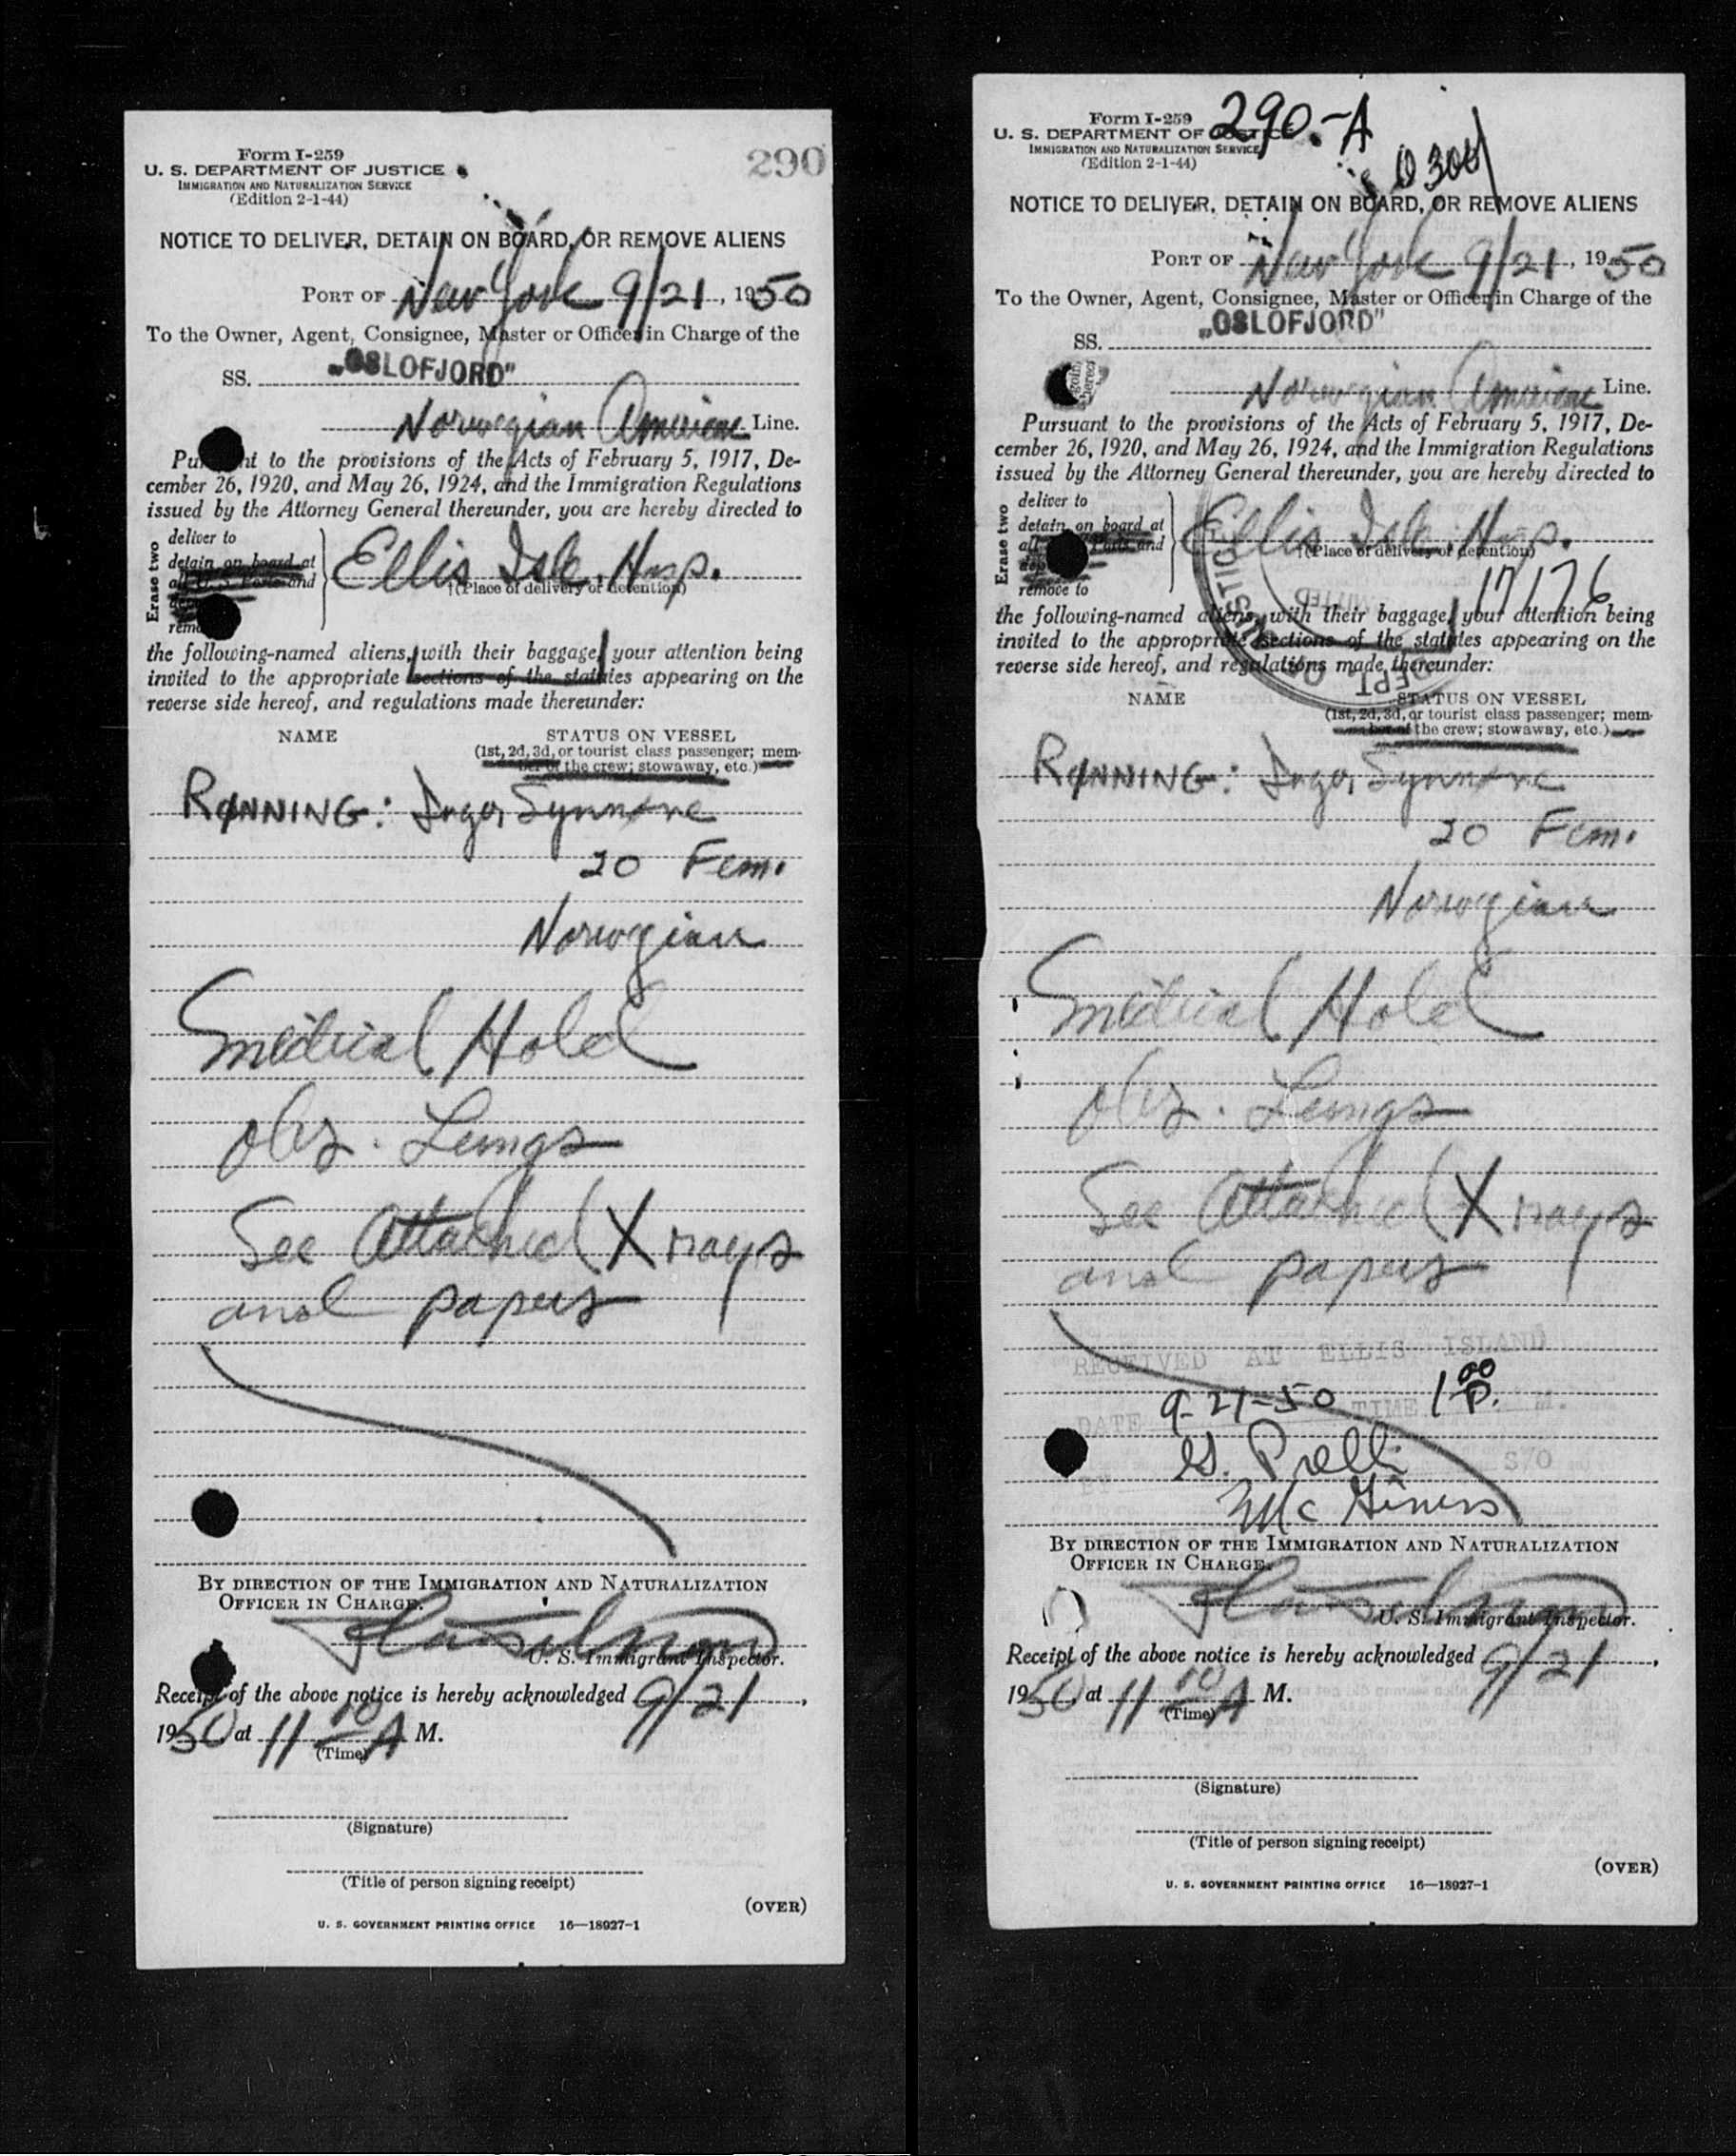 Form I-259
U. S. DEPARTMENT OF JUSTICE
IMMIGRATION AND NATURALIZATION SERVICE
(Edition 2-1-44)
290
NOTICE TO DELIVER, DETAIN ON BOARD, OR REMOVE ALIENS
PORT OF New York 9/21, 1950
To the Owner, Agent, Consignee, Master or Officer in Charge of the
SS. „OSLOFJORD"
Norwegian American Line.
Pursuant to the provisions of the Acts of February 5, 1917, De-
cember 26, 1920, and May 26, 1924, and the Immigration Regulations
issued by the Attorney General thereunder, you are hereby directed to
Erase two
deliver to
detain on board at
all U. S. Ports and
Ellis Isle. Hosp.
†(Place of delivery or detention)
the following-named aliens, with their baggage, your attention being
invited to the appropriate sections of the statutes appearing on the
reverse side hereof, and regulations made thereunder:
NAME STATUS ON VESSEL
(1st, 2d, 3d, or tourist class passenger; mem-
ber of the crew; stowaway, etc.)
RØNNING: Inga Synnøve
20 Fem.
Norwegian
Medical Hold
Obs. Lungs
See Attached X rays
and papers
BY DIRECTION OF THE IMMIGRATION AND NATURALIZATION
OFFICER IN CHARGE.
U. S. Immigrant Inspector.
Receipt of the above notice is hereby acknowledged 9/21,
1950 at 11 10 A M.
(Time)
(Signature)
(Title of person signing receipt)
(OVER)
U. S. GOVERNMENT PRINTING OFFICE 16—18927-1
Form I-259
U. S. DEPARTMENT OF JUSTICE
IMMIGRATION AND NATURALIZATION SERVICE
(Edition 2-1-44)
290-A
NOTICE TO DELIVER, DETAIN ON BOARD, OR REMOVE ALIENS
PORT OF New York 9/21, 1950
To the Owner, Agent, Consignee, Master or Officer in Charge of the
SS. „OSLOFJORD"
Norwegian American Line.
Pursuant to the provisions of the Acts of February 5, 1917, De-
cember 26, 1920, and May 26, 1924, and the Immigration Regulations
issued by the Attorney General thereunder, you are hereby directed to
Erase two
deliver to
detain on board at
all Ports and
remove to
Ellis Isle. Hosp.
†(Place of delivery or detention)
17176
the following-named aliens, with their baggage, your attention being
invited to the appropriate sections of the statutes appearing on the
reverse side hereof, and regulations made thereunder:
DEPT. OF JUSTICE
NAME STATUS ON VESSEL
(1st, 2d, 3d, or tourist class passenger; mem-
ber of the crew; stowaway, etc.)
RØNNING: Inga Synnøve
20 Fem.
Norwegian
Medical Hold
Obs. Lungs
See Attached X rays
and papers
RECEIVED AT ELLIS ISLAND
DATE 9-21-50 TIME 1 00 P. M.
BY G. S/O
BY DIRECTION OF THE IMMIGRATION AND NATURALIZATION
OFFICER IN CHARGE.
U. S. Immigrant Inspector.
Receipt of the above notice is hereby acknowledged 9/21,
1950 at 11 10 A M.
(Time)
(Signature)
(Title of person signing receipt)
(OVER)
U. S. GOVERNMENT PRINTING OFFICE 16—18927-1